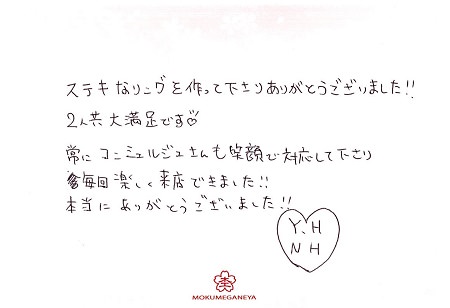 ステキなリングを作って下さりありがとうございました!!
2人共大満足です♡
常にコンシェルジュさんも笑顔で対応して下さり
毎回楽しく来店できました!!
本当にありがとうございました!!
Y.H
N H
杢
MOKUMEGANEYA